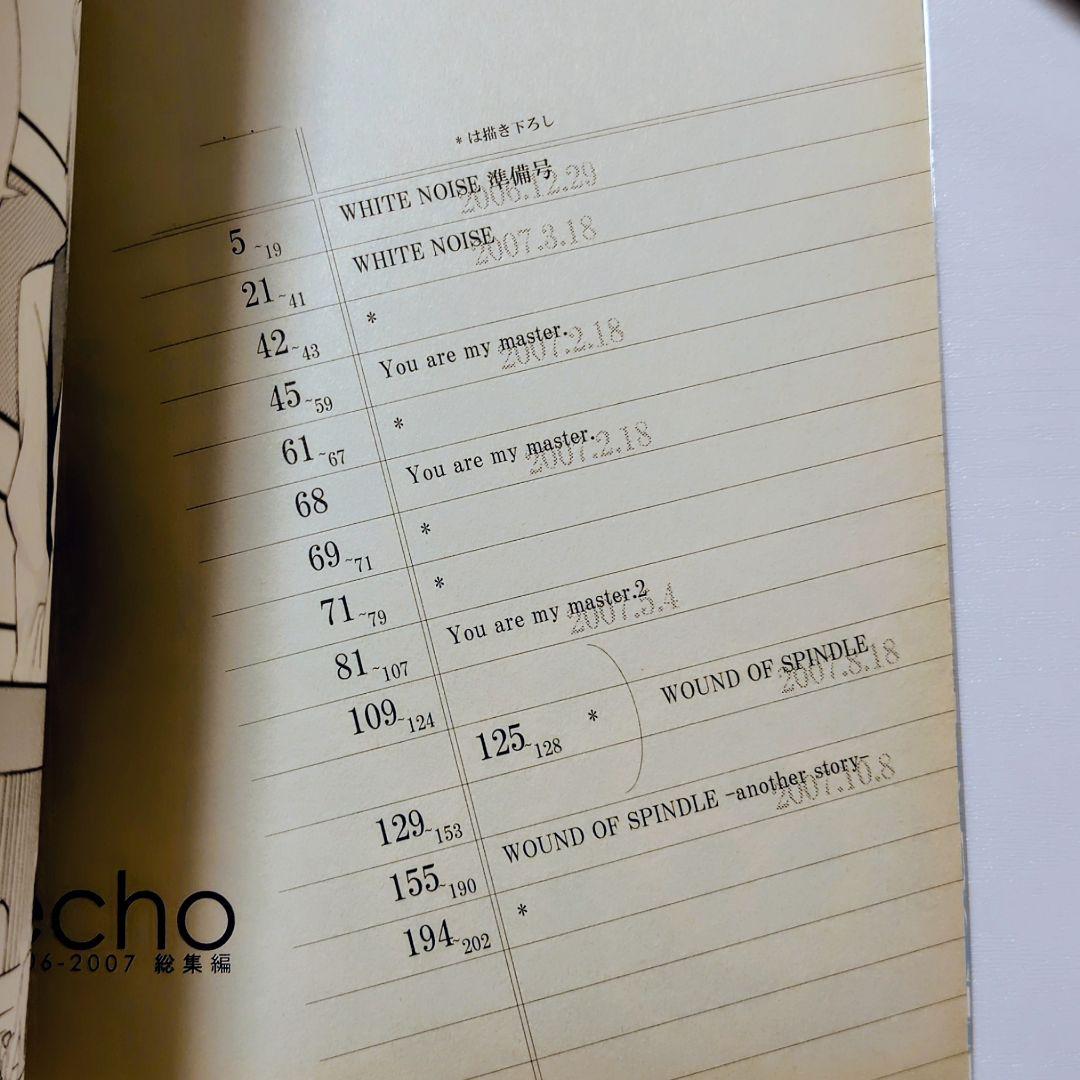 * は描き下ろし
5~19 WHITE NOISE 準備号 2006.12.29
21~41 WHITE NOISE 2007.3.18
42~43 *
45~59 You are my master. 2007.2.18
61~67 *
68 You are my master. 2007.2.18
69~71 *
71~79 *
81~107 You are my master.2 2007.5.4
109~124
125~128 *
WOUND OF SPINDLE 2007.8.18
129~153
155~190 WOUND OF SPINDLE -another story- 2007.10.8
194~202 *
echo
06-2007 総集編